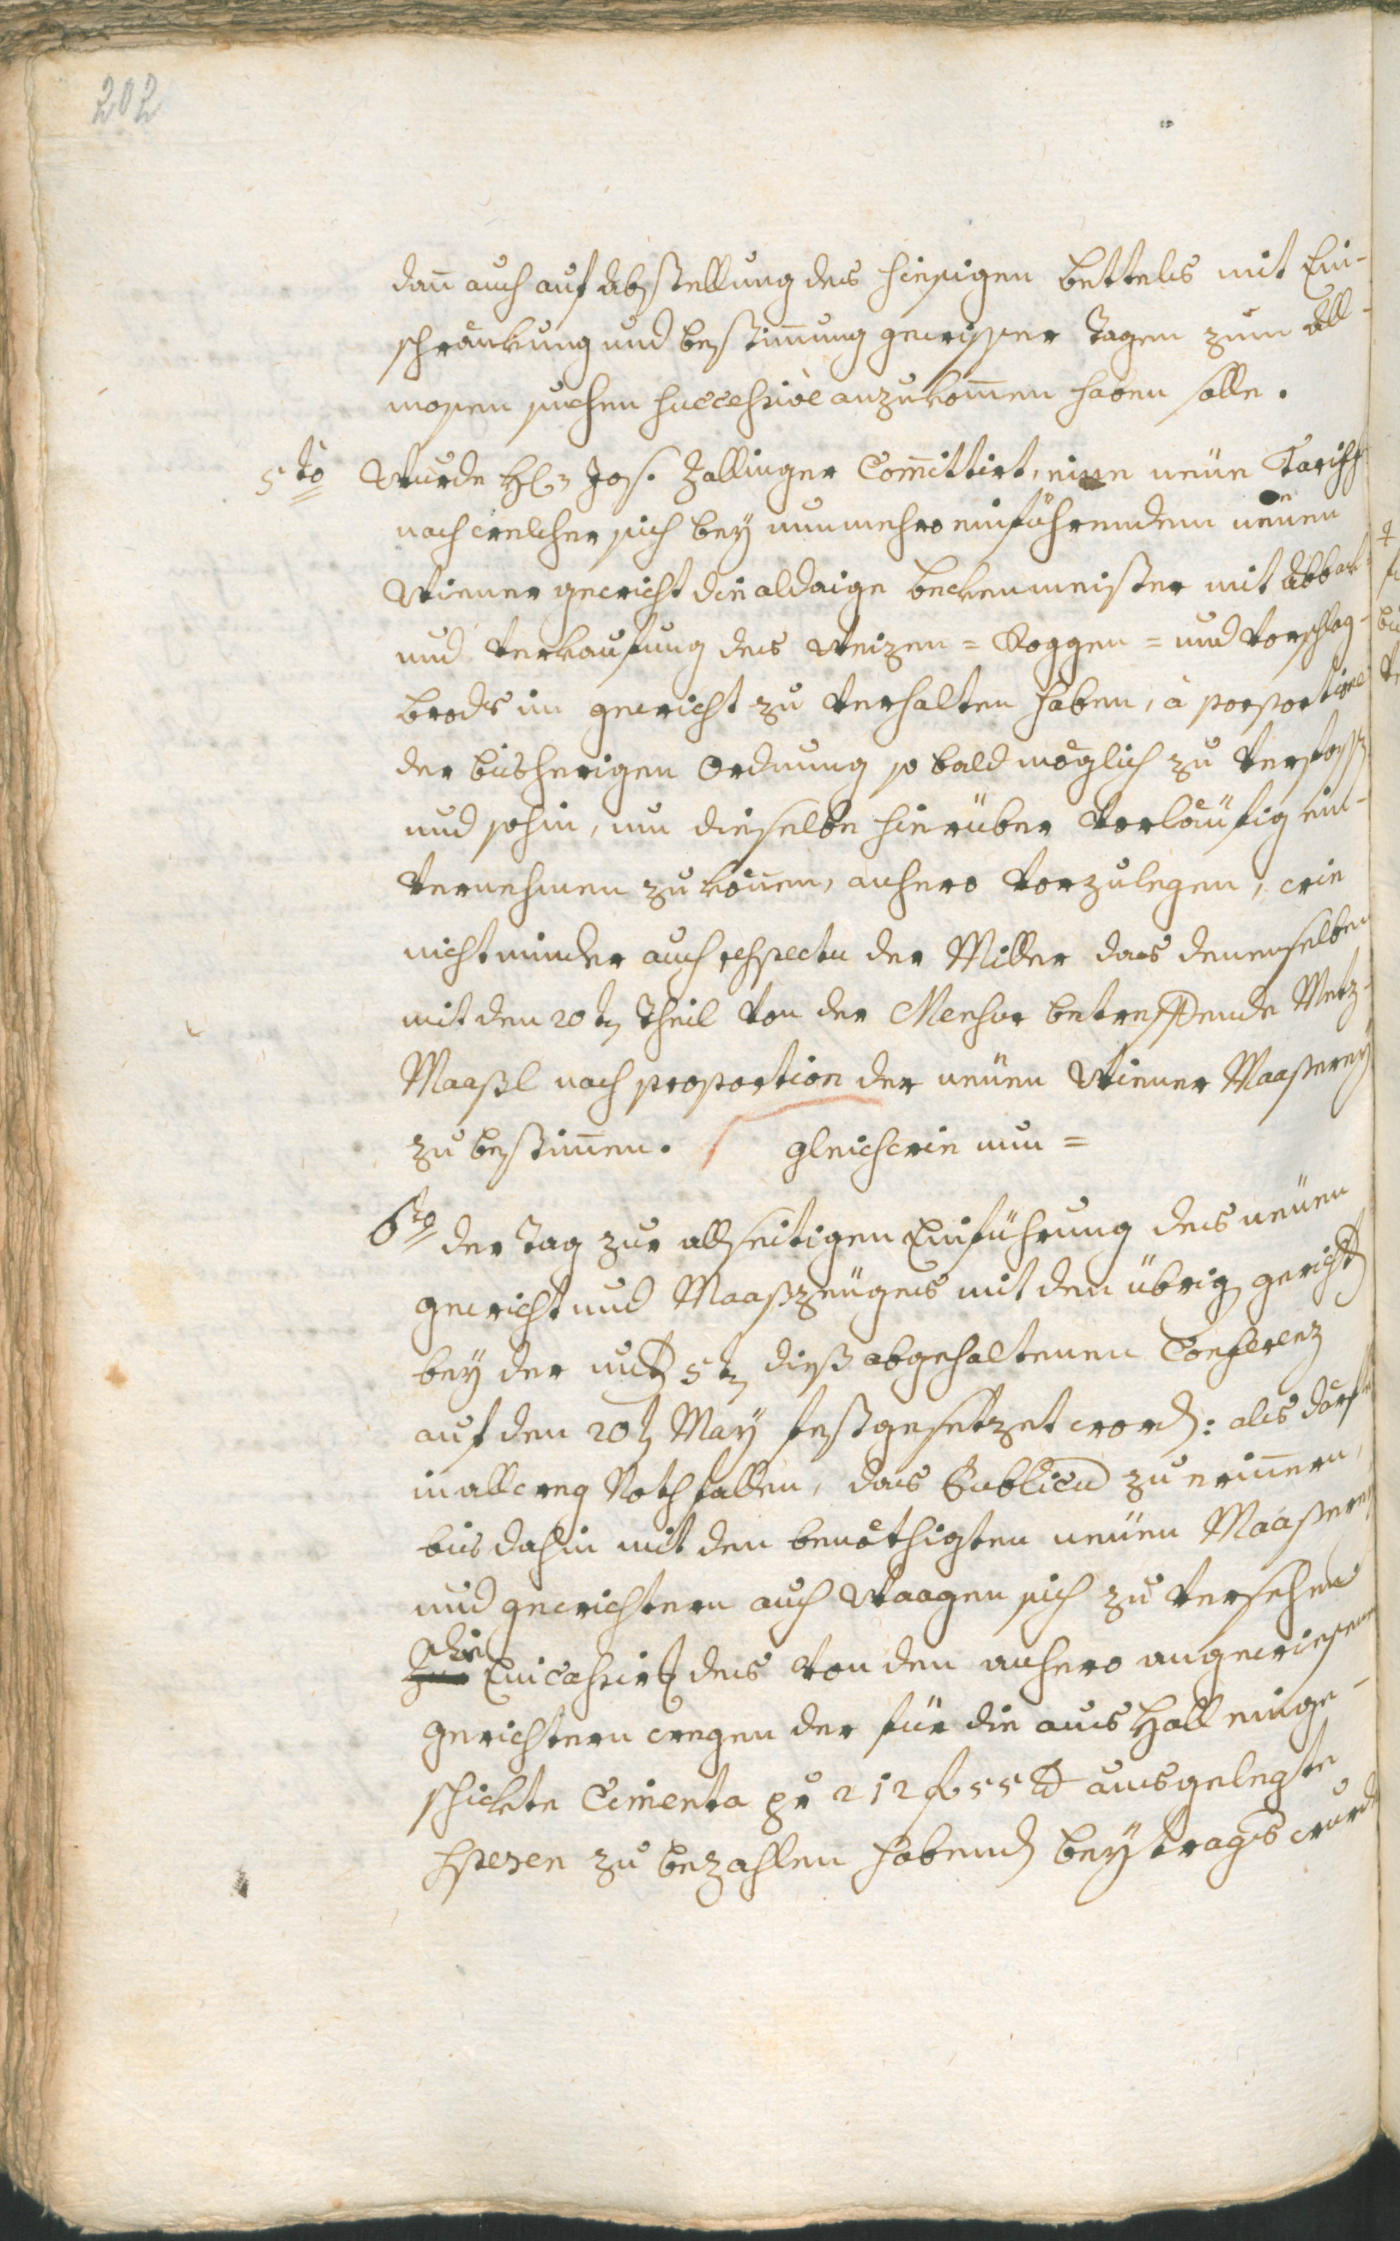 202
dan̄ auch auf Abstellung des hiesigen Bettels mit Ein-
schränkung und Bestim̄ung gewisser Tagen zum All-
mosen suchen successive anzukom̄en haben solle.
5to Wurde H: Jos. Zallinger Com̄ittirt, eine neue Tariff
nach welcher sich bey nunmehro einführendem neuen
Wiener gewicht die aldaige Beckenmeister mit Abbak-
und Verkaufung des Weizen= Roggen= und Vorschlag-
brods im gewicht zu verhalten haben, à proportione
der bisherigen Ordnung so bald möglich zu verfass
und sohin, um dieselbe hierüber vorläufig ein-
vernehmen zu kön̄en, anhero vorzulegen, wie
nicht minder auch respectu der Miller das denenselben
mit den 20tn Theil von der Mensur betreffende Metz-
Maaßl nach proportion der neuen Wiener Maaßerey
zu bestim̄en. gleichwie nun=
6to der Tag zur allseitigen Einführung des neuen
gewicht und Maaßzeuges mit den übrig gericht
bey der unt 5tn dieß abgehaltenen Conferenz
auf den 20tn May festgesetzet word: als dörfte
in allweg Noth fallen, das Publicum zu erin̄ern,
bis dahin mit den benöthigten neuen Maaßerey
und gewichtern auch Waagen sich zu versehen
Die Einkassir des von den anhero angewiesenen
gerichtern wegen der für die aus Hall einge-
schickte Cimenta pr 212 f 55 x ausgelegte
spesen zu bezahlen habend Beytrags wurde